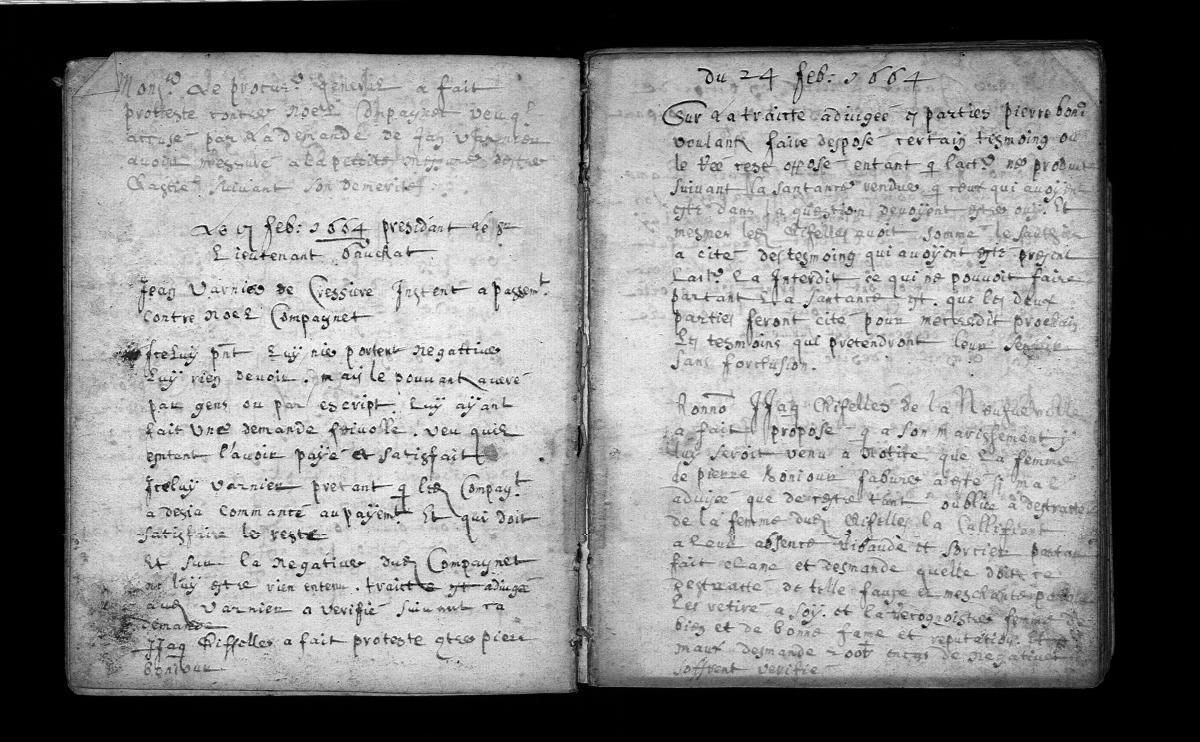 Mons.r Le procur.r general a fait
proteste contre Noel Compagnet veu q.
accusé par la demande de Jaq Varnieu
avoir
Chastier suivant son demerite
Le 17 feb: 1664 presidant le Sr
Lieutenant Bauchat
Jean Varnier de Cressiere Instent a passem.t
contre Noel Compagnet
Iceluy pñt Luy nie portent Negattive
Luy rien devoir. mais le pouvant averé
par gens ou par escript. Luy ayant
fait Une demande frivolle. veu quil
entent l'avoir payé et satisfait
Iceluy Varnier pretant q led Compag.t
a desia Commancé au payem.t Et qui doit
satisfaire le reste
Et sur la Negative dud Compagnet
ne luy estre rien entenu. traicte et adiugé
aud Varnier a verifié suivant sa
demande
JJaq Chiffelles a fait proteste contre pierre
boniour
du 24 feb: 1664
Sur la traicte adiugée es parties pierre boni
voulant faire desposé certain tesmoing ou
le Reé cest opposé entant q lact.r ne produit
suivant la santance rendue q ceux qui avoyent
esté dans la question devoyent estre ouy. Et
mesmes led Chiffelles avoit sommé le sautier
a cité des tesmoing qui avoyent esté present
Lact.r La Interdit ce qui ne pouvoit faire
partant La santance est. que les deux
parties feront cité pour mecredit prochain
Les tesmoins qui pretendront leur servir
sans forclusion.
JJaq Chiffelles de la Neufveville
a fait proposé q a son marissement y
luy seroit venu a Notice que La femme
de pierre boniour favure a esté sy mal
advisée que de cestre tant oublié a destracté
de la femme dud Chiffelles la Calliffiant
a leur absence Ribaude et sorcier partan
fait clame et desmande quelle doit ce
destracté de telle fausse et meschante
Les retiré a soy. et la recognoistre femme de
bien et de bonne fame et reputation. Et
maux desmande 200ll encas de Negative
soffrent verifié